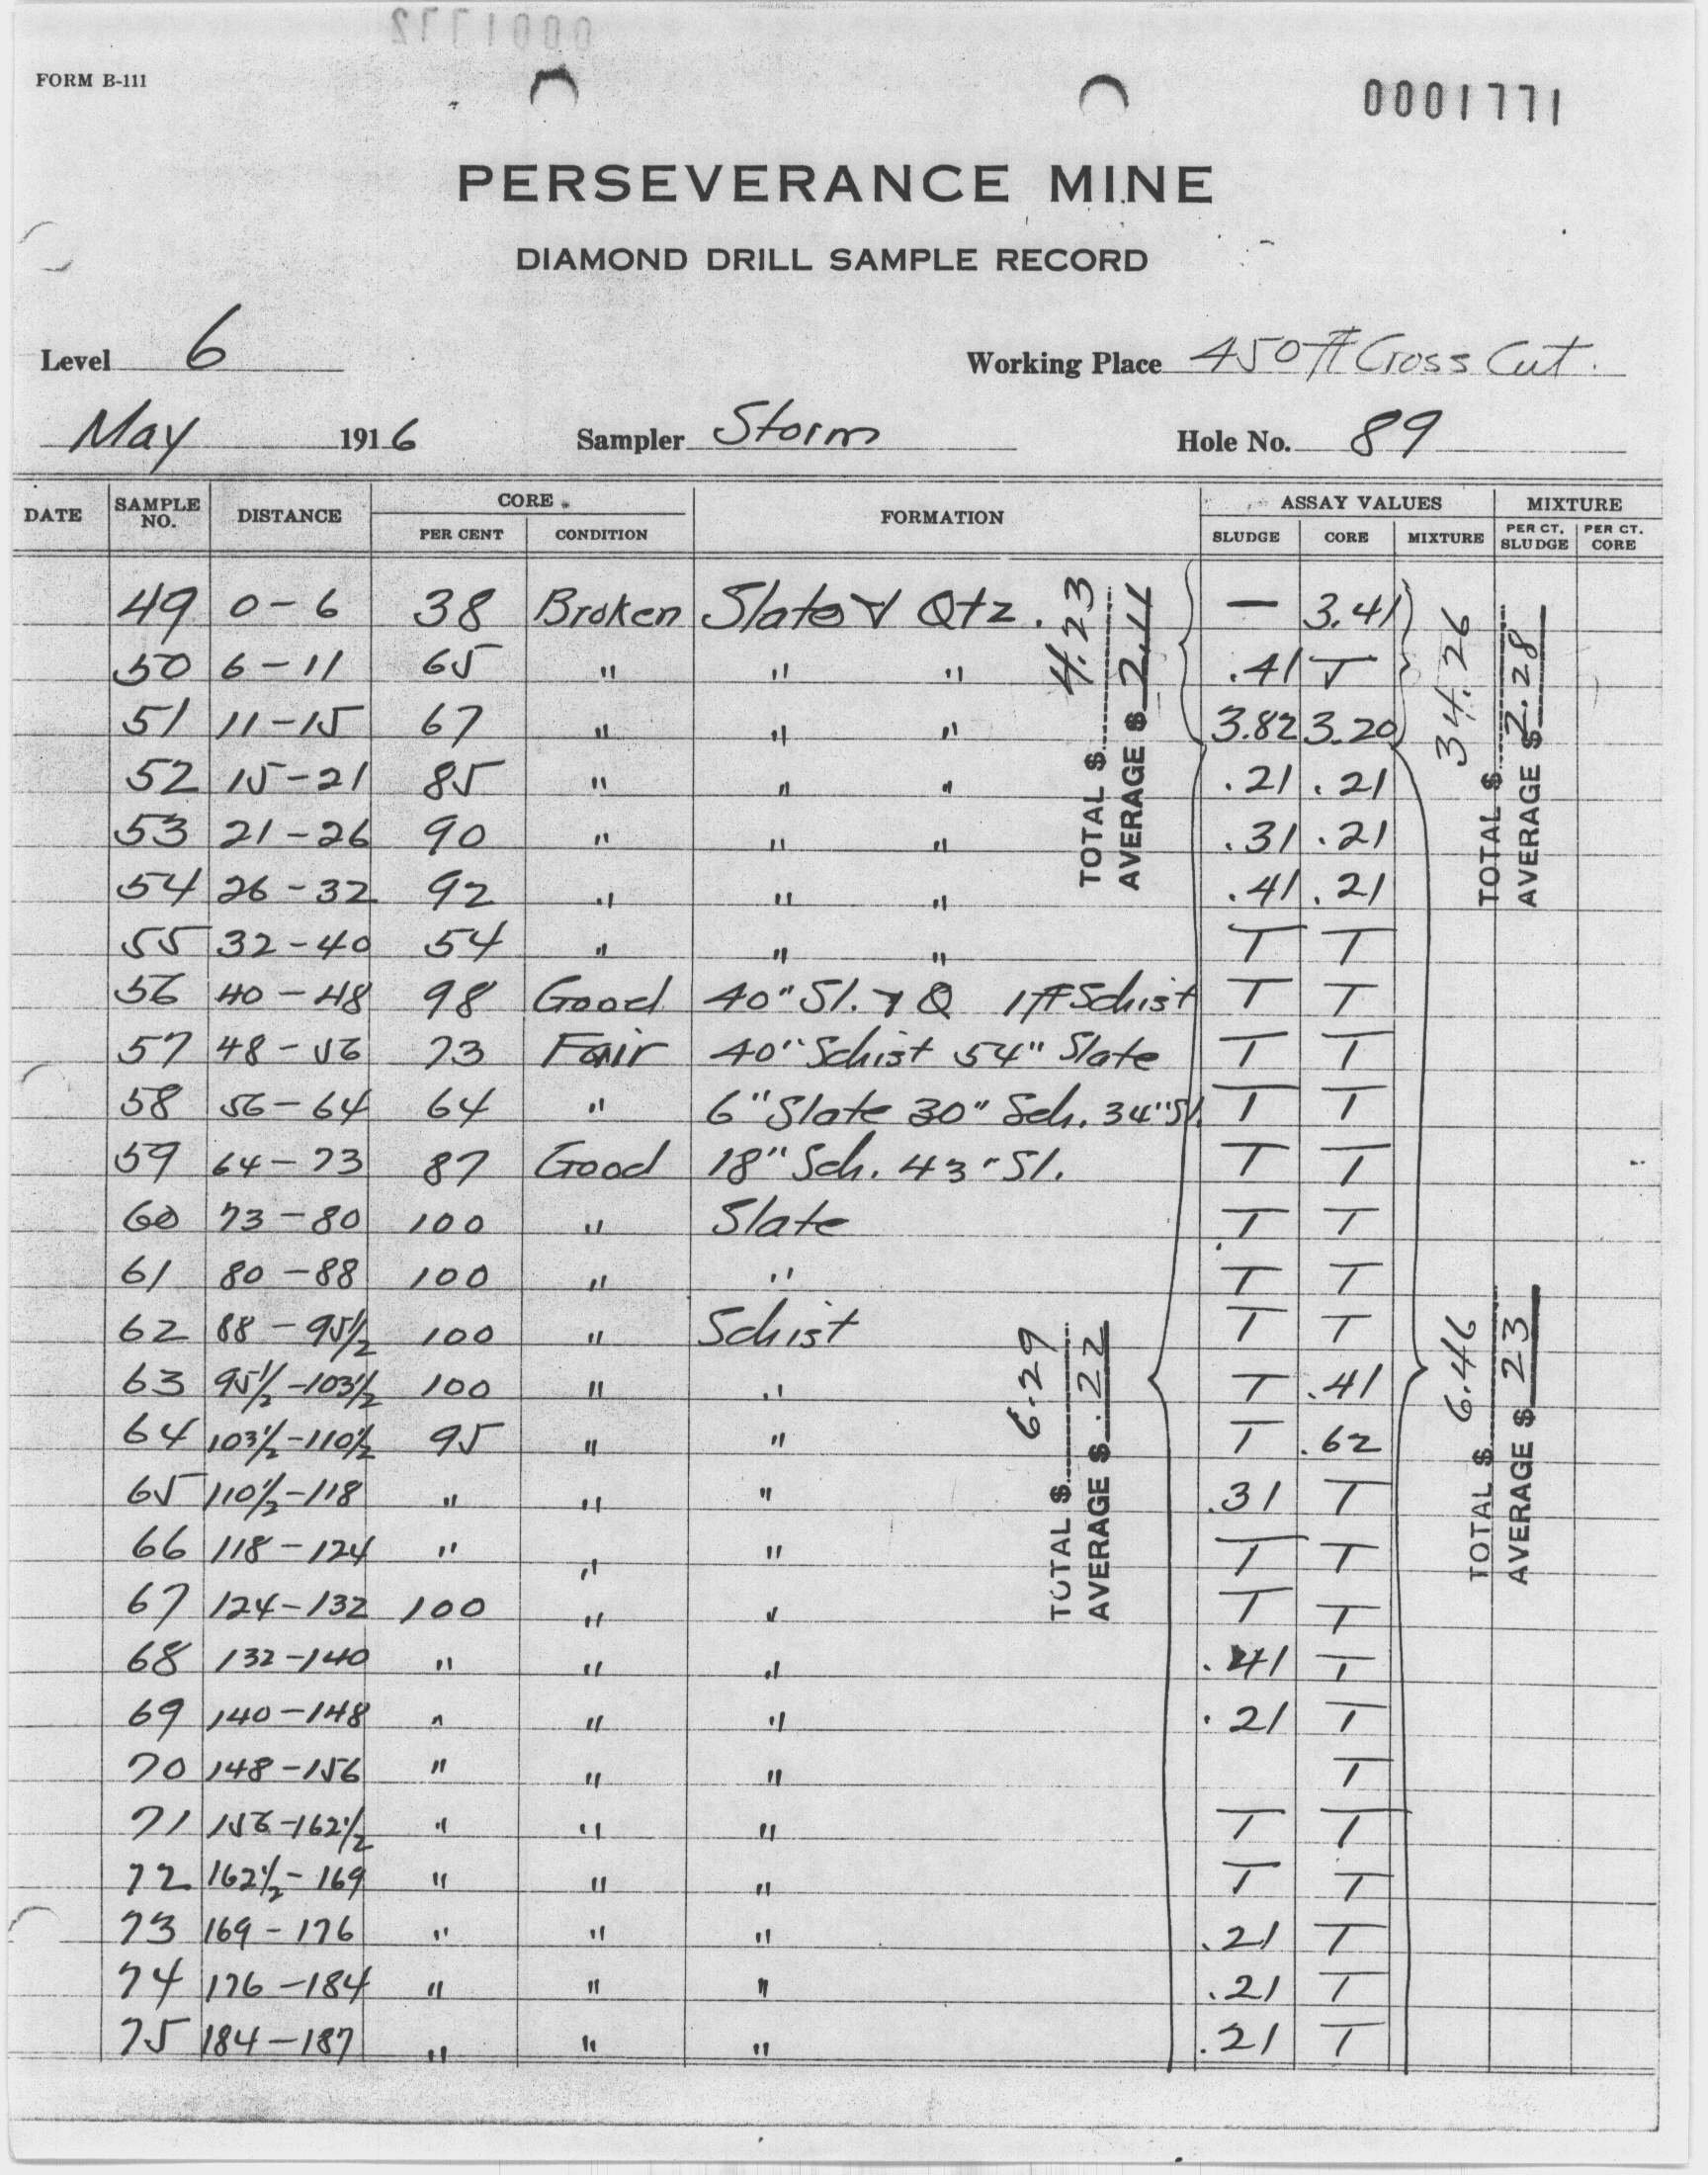 0001772
FORM B-111
0001771
PERSEVERANCE MINE
DIAMOND DRILL SAMPLE RECORD
Level 6 Working Place 450 ft Cross Cut.
May 1916 Sampler Storm Hole No. 89
DATE SAMPLE NO. DISTANCE CORE PER CENT CONDITION FORMATION ASSAY VALUES SLUDGE CORE MIXTURE MIXTURE PER CT. SLUDGE PER CT. CORE
49 0-6 38 Broken Slate & Qtz. — 3.41
50 6-11 65 " " " .41 T
51 11-15 67 " " " 3.82 3.20
52 15-21 85 " " " .21 .21
53 21-26 90 " " " .31 .21
54 26-32 92 " " " .41 .21
55 32-40 54 " " " T T
56 40-48 98 Good 40" Sl. & Q 1 ft Schist T T
57 48-56 73 Fair 40" Schist 54" Slate T T
58 56-64 64 " 6" Slate 30" Sch. 34" Sl. T T
59 64-73 87 Good 18" Sch. 43" Sl. T T
60 73-80 100 " Slate T T
61 80-88 100 " " T T
62 88-95½ 100 " Schist T T
63 95½-103½ 100 " " T .41
64 103½-110½ 95 " " T .62
65 110½-118 " " " .31 T
66 118-124 " " " T T
67 124-132 100 " " T T
68 132-140 " " " .41 T
69 140-148 " " " .21 T
70 148-156 " " " T
71 156-162½ " " " T T
72 162½-169 " " " T T
73 169-176 " " " .21 T
74 176-184 " " " .21 T
75 184-187 " " " .21 T
TOTAL $ 4.23
AVERAGE $ 2.11
TOTAL $ 34.26
AVERAGE $ 2.28
TOTAL $ 6.29
AVERAGE $ .22
TOTAL $ 6.46
AVERAGE $ 23